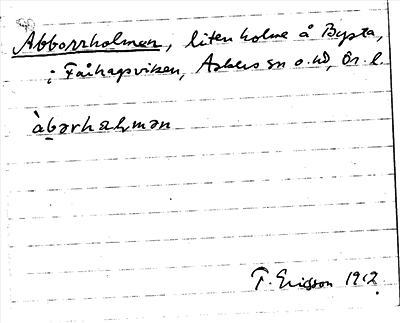 Abborrholmen, liten holme å Bysta,
i Fåhagsviken, Askers sn o. hd, Ör. l.
àbərhαlmən
F. Ericsson 1912.